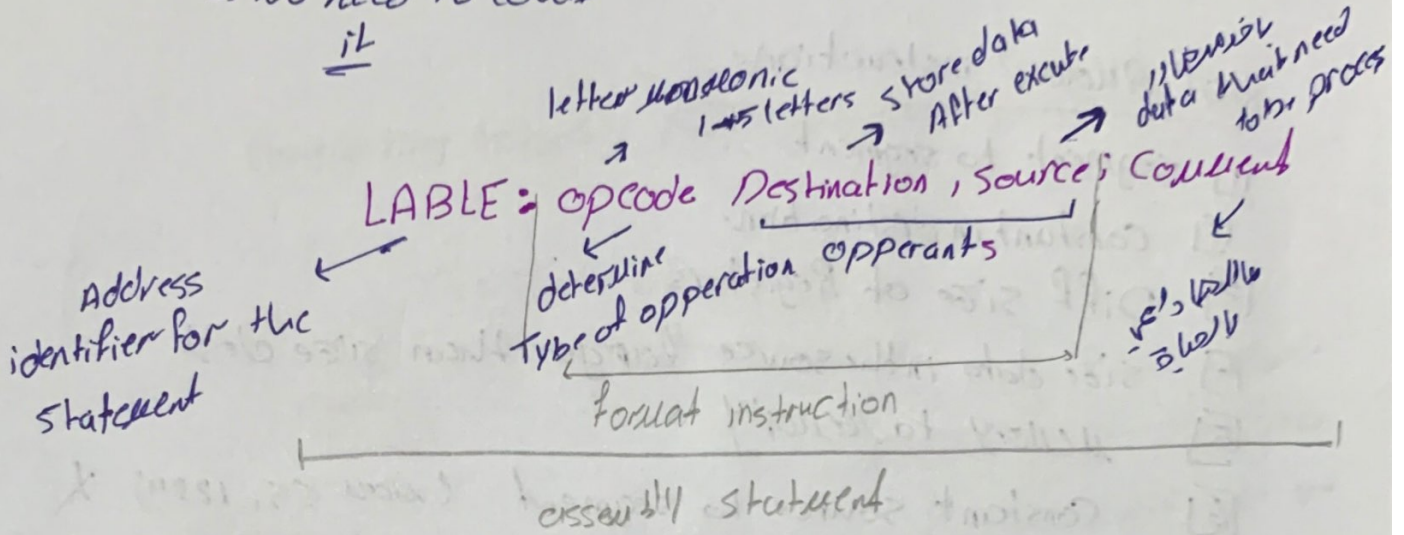 it
letter
1→5 letters
store data
After excute
باختصار
data that need
to be proces
LABLE: opcode Destination , source ; Comment
Address
identifier for the
statement
determine
Type of opperation
opperants
مالها داعي
بالحياة
format instruction
assembly statement